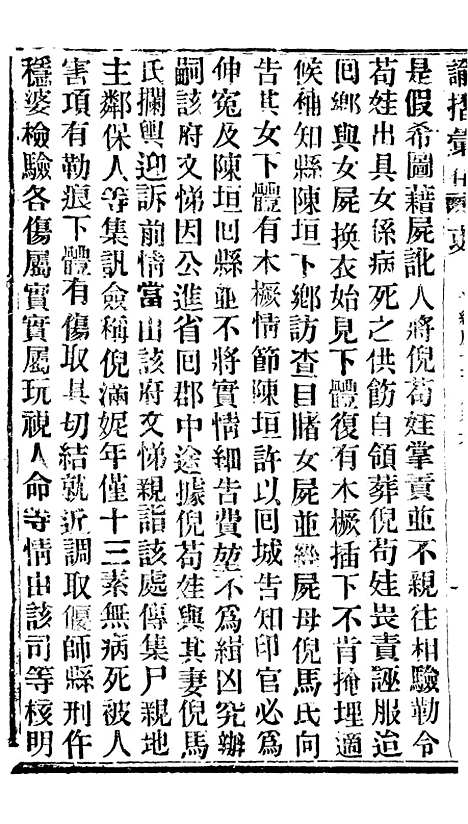 諭摺彙存
是假希圖藉屍訛人將倪苟娃掌責並不親往相驗勒令
苟娃出具女係病死之供飭自領葬倪苟娃畏責誣服迨
囘鄉與女屍換衣始見下體復有木橛插下不肯掩埋適
候補知縣陳垣下鄉訪查目睹女屍並經屍母倪馬氏向
告其女下體有木橛情節陳垣許以囘城告知印官必為
伸冤及陳垣囘縣並不將實情細告費堃不為緝凶究辦
嗣該府文悌因公進省囘郡中途據倪苟娃與其妻倪馬
氏攔輿迎訴前情當由該府文悌親詣該處傳集尸親地
主鄰保人等集訊僉稱倪滿妮年僅十三素無病死被人
害項有勒痕下體有傷取具切結就近調取偃師縣刑仵
穩婆檢驗各傷屬實實屬玩視人命等情由該司等核明